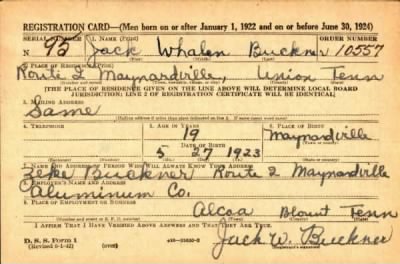 REGISTRATION CARD—(Men born on or after January 1, 1922 and on or before June 30, 1924)
SERIAL NUMBER 1. Name (Print) ORDER NUMBER
N 93 Jack Whalen Buckner 10557
2. Place of Residence (Print)
Route 2 Maynardville, Union Tenn
[THE PLACE OF RESIDENCE GIVEN ON THE LINE ABOVE WILL DETERMINE LOCAL BOARD
JURISDICTION; LINE 2 OF REGISTRATION CERTIFICATE WILL BE IDENTICAL]
3. Mailing Address
Same
4. Telephone 5. Age in Years 6. Place of Birth
19 Maynardville
5 27 1923
7. Name and Address of Person Who Will Always Know Your Address
Zeke Buckner Route 2 Maynardville
8. Employer's Name and Address
Aluminum Co.
9. Place of Employment or Business
Alcoa Blount Tenn
I Affirm That I Have Verified Above Answers and That They Are True.
D. S. S. Form 1
(Revised 6-1-42) (over) Jack W. Buckner